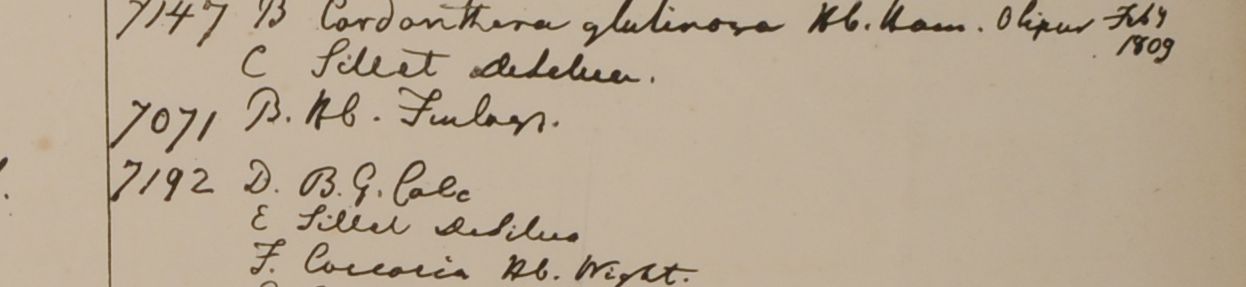 7147 B Cardanthera glutinosa Hb. Ham. Olipur Feby 1809
C Sillet DeSilva.
7071 B. Hb. Finlays.
7192 D. B. G. Calc
E Sillet DeSilva
F. Hb. Wight.